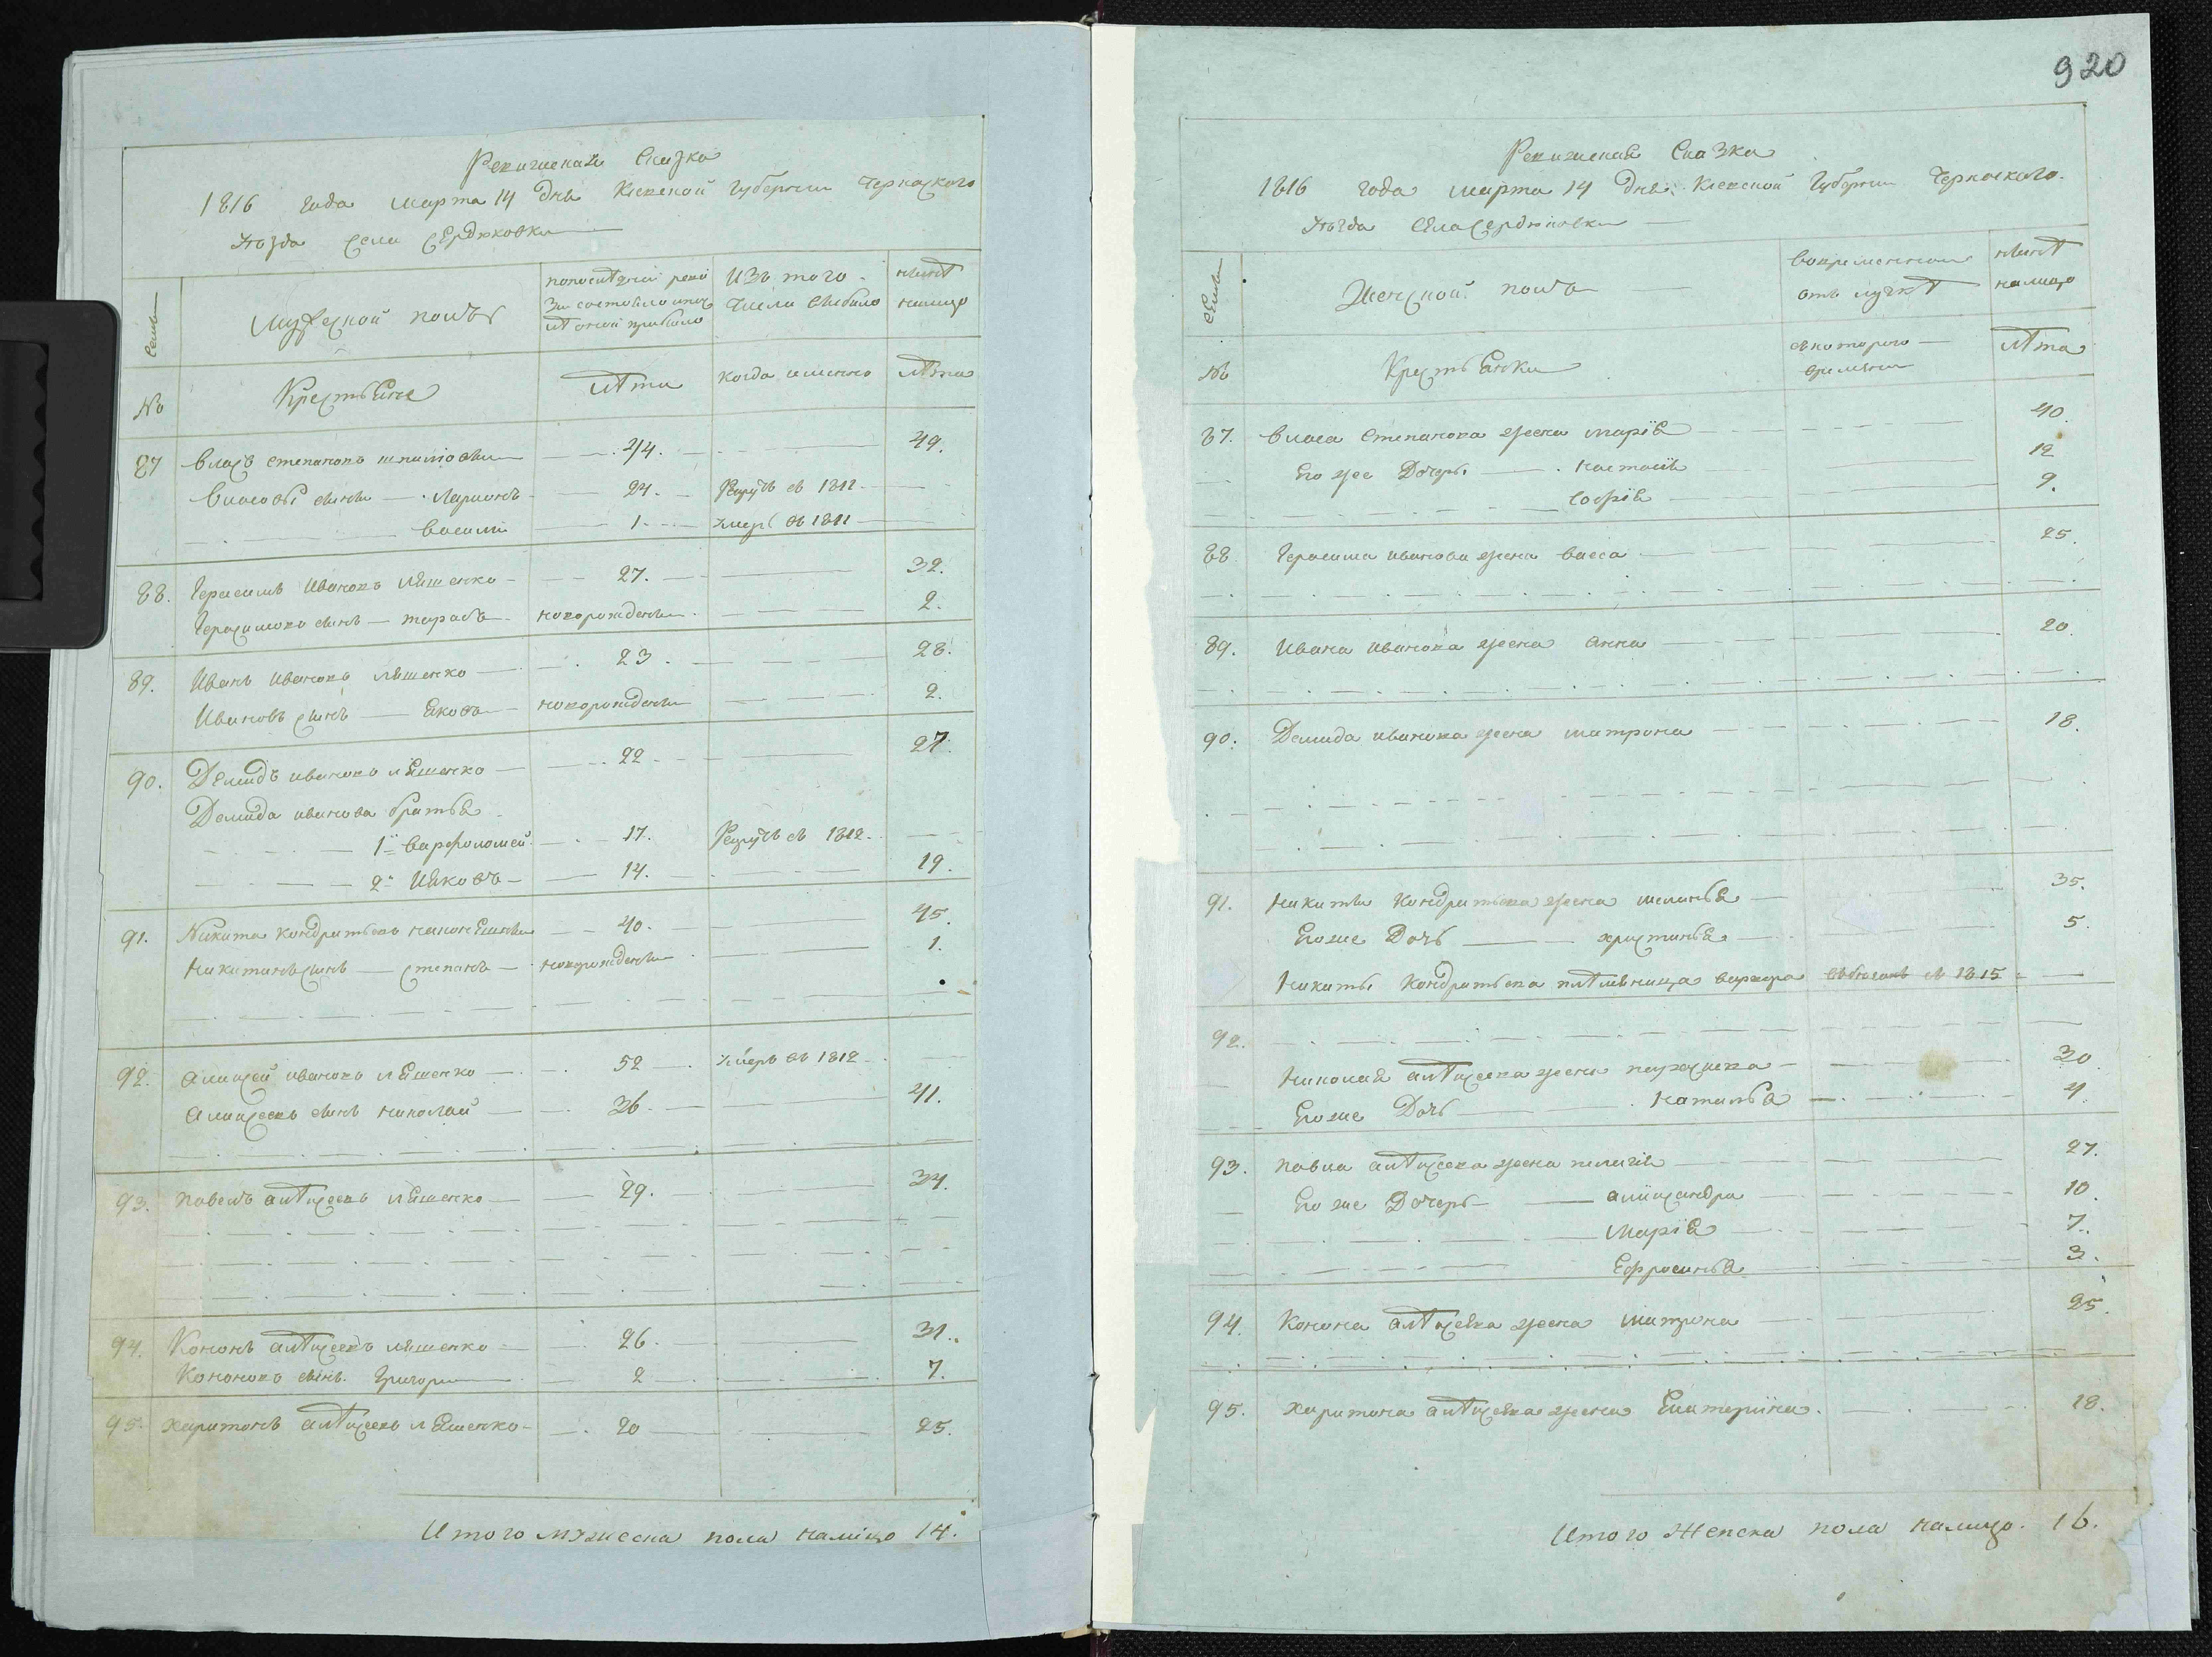 Ревижская Сказка
1816 года марта 14 дня Киевской Губернии Черкаского
уѣзда села Сердюковки
Семьи
Мужеской полъ
по последней реви
зіи состояло и после
оной прибыло
Изъ того
числа выбыло
нынѣ
налицо
№
Крестьяне
лѣта
когда именно
лѣта
87 Власъ Степановъ 44. 49.
Власовы сыны Ларионъ 24. Рекрутъ въ 1812
Василий 1. умеръ въ 1811
88. Герасимъ Ивановъ ляшенко 27. 32.
Герасимовъ сынъ Тарасъ новорожденны 2.
89. Иванъ Ивановъ ляшенко 23. 28.
Ивановъ сынъ Яковъ новорожденны 2.
90. Демидъ Ивановъ ляшенко 22 27.
Демида иванова братья
1й Варфоломей 17. Рекрутъ въ 1812.
2й Ияковъ 14. 19.
91. Никита Кондратьевъ 40. 45.
Никитинъ сынъ Степанъ новорожденны 1.
92. Аликсей ивановъ ляшенко 52 умеръ въ 1812
Аликсеевъ сынъ николай 36. 41.
93. Павелъ алѣксеевъ ляшенко 29. 34.
94. Кононъ алѣксеевъ ляшенко 26. 31.
Кононовъ сынъ Григори 2 7.
95. Харитонъ алѣксеевъ ляшенко 20 25.
Итого мужеска пола налицо 14.
920
Ревижская Сказка
1816 года марта 14 дня Киевской Губернии Черкаского
уѣзда села Сердюковки
Семьи
Женской полъ
во временной
отлучкѣ
нынѣ
налицо
№
Крестьянки
съ которого
времени
лѣта
87. Власа Степанова жена Марія 40.
Его же Дочеры Настасія 12
Софія 9.
88 Герасима иванова жена васса 25.
89. Ивана иванова жена анна 20.
90. Демида иванова жена матрона 18.
91. Никиты Кондратьева жена меланья 35.
Его же Дочь христинья 5.
Никиты Кондратьева племяница варвара въ 1815
92.
Николая алѣксеева жена параскева 30
Его же Дочь наталья 4
93. Павла алѣксеева жена пелагия 27.
Его же Дочеры аликсандра 10.
Марія 7.
Ефросинья 3.
94. Конона алѣксеева жена матрона 25.
95. Харитона алѣксеева жена Екатерина. 18.
Итого Женска пола налицо. 16.